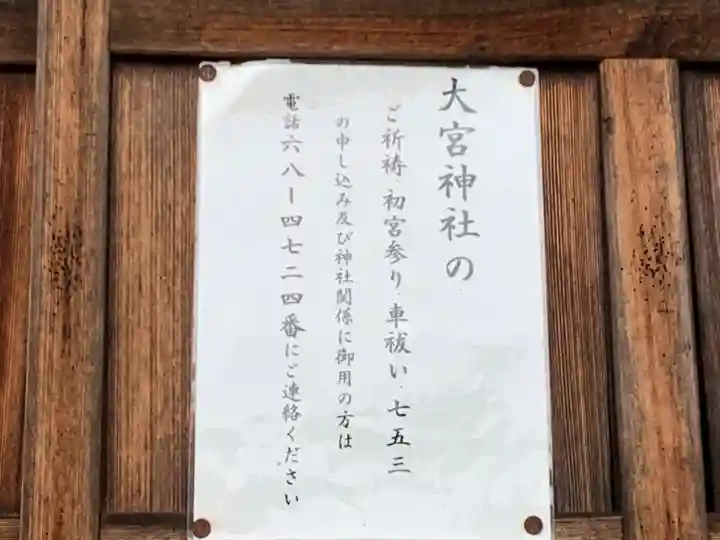 大宮神社の
ご祈祷、初宮参り、車祓い、七五三
の申し込み及び神社関係に御用の方は
電話六八ー四七二四番にご連絡ください